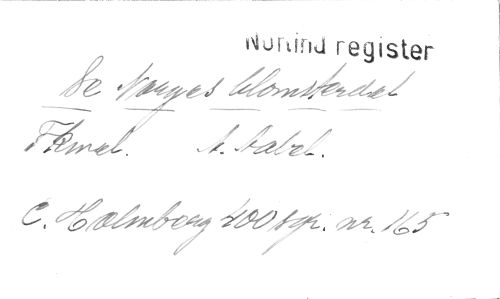 Norlind register
De Norges blomsterdal
Fkmel. A. Sabel.
C. Holmberg 400 sgr. nr. 165